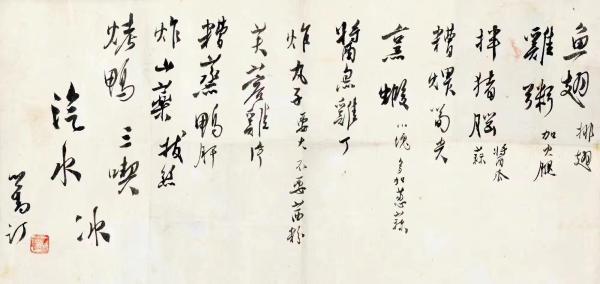 魚翅 排翅
雞粥 加火腿
拌猪腦 醬瓜 蒜
糟煨筍尖
烹蝦 小塊多加蔥蒜
醬雞丁
炸丸子 要大不要粉
芙蓉雞片
糟蒸鴨肝
炸山藥拔絲
烤鴨 三喫
汽水 冰
心畬訂